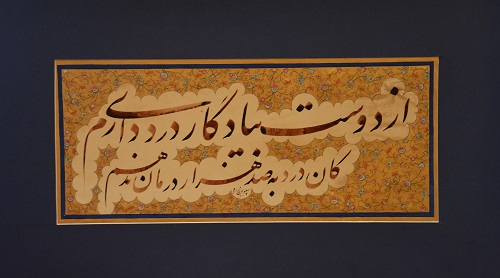 از دوست یادگار دردی دارم
کان درد به صد هزار درمان ندهم